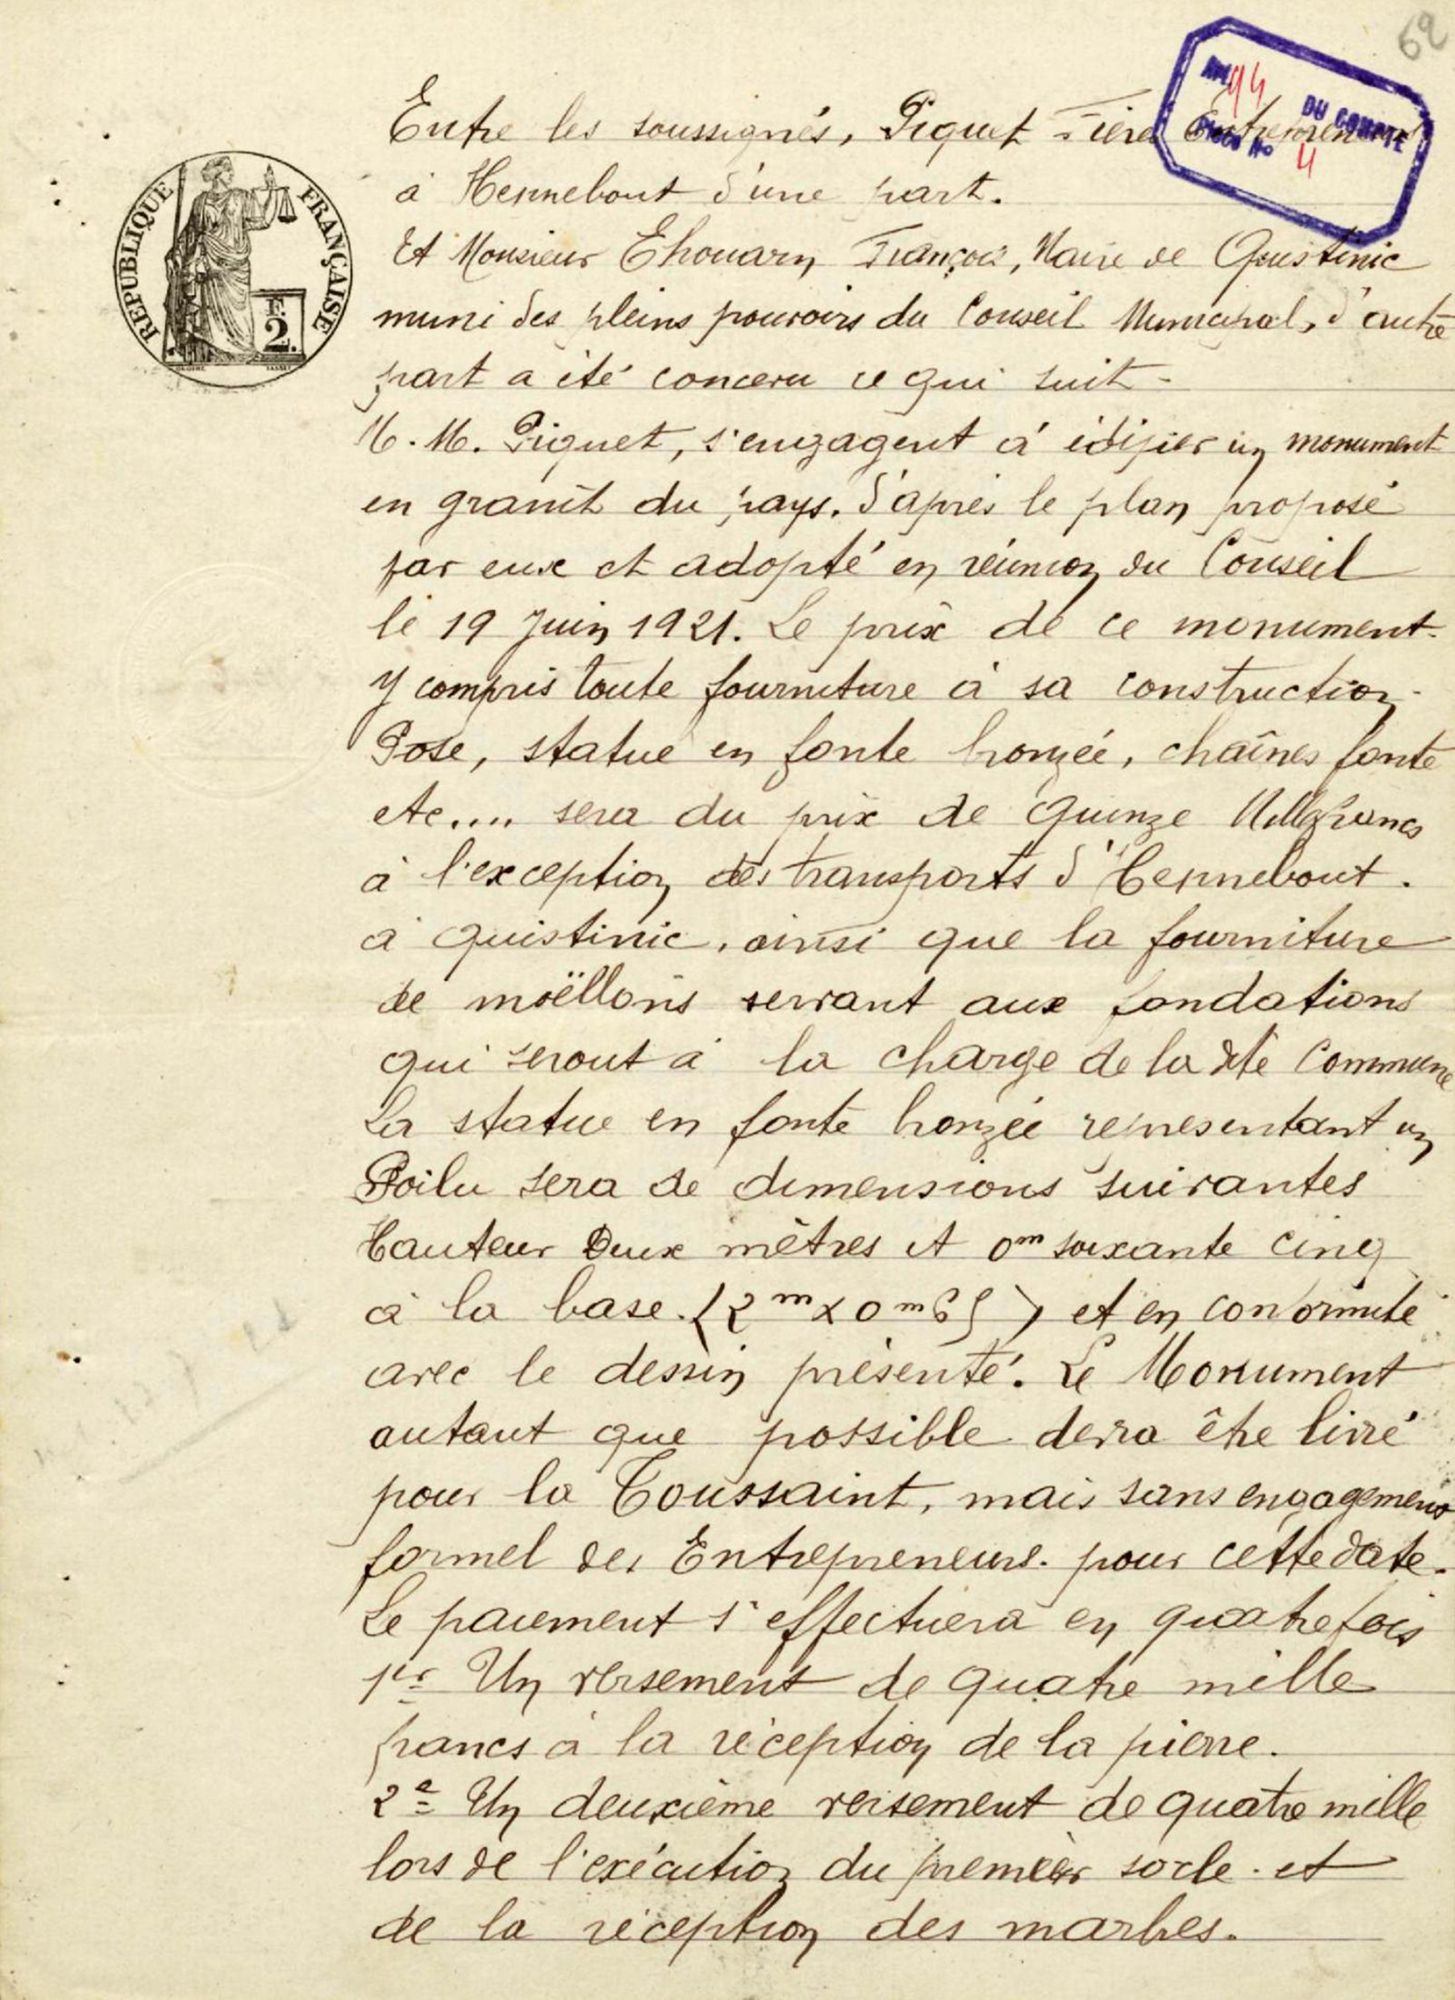 62
Art. 94 DU COMPTE
Pièce No 4
RÉPUBLIQUE FRANÇAISE
2 F.
Entre les soussignés, Piquet Frères Entrepreneurs
à Hennebout d'une part.
Et Monsieur Ehouarn François, Maire de Quistinic
muni des pleins pouvoirs du Conseil Municipal, d'autre
part a été convenu ce qui suit -
M.M. Piquet, s'engagent à édifier un monument
en granit du pays. d'après le plan proposé
par eux et adopté en réunion du Conseil
le 19 Juin 1921. Le prix de ce monument.
Y compris toute fourniture à sa construction -
Pose, statue en fonte bronzée, chaînes fonte
etc.... sera du prix de Quinze Mille francs
à l'exception des transports d'Hennebout.
à Quistinic, ainsi que la fourniture
de moëllons servant aux fondations
qui seront à la charge de la dte Commune
La statue en fonte bronzée représentant un
Poilu sera de dimensions suivantes
Hauteur Deux mètres et 0m soixante cinq
à la base. (2m x 0m65) et en conformité
avec le dessin présenté. Le Monument
autant que possible devra être livré
pour la Toussaint, mais sans engagement
formel des Entrepreneurs. pour cette date.
Le paiement s'effectuera en quatre fois
1er Un versement de quatre mille
francs à la réception de la pierre.
2e Un deuxième versement de quatre mille
lors de l'exécution du premier socle. et
de la réception des marbres.